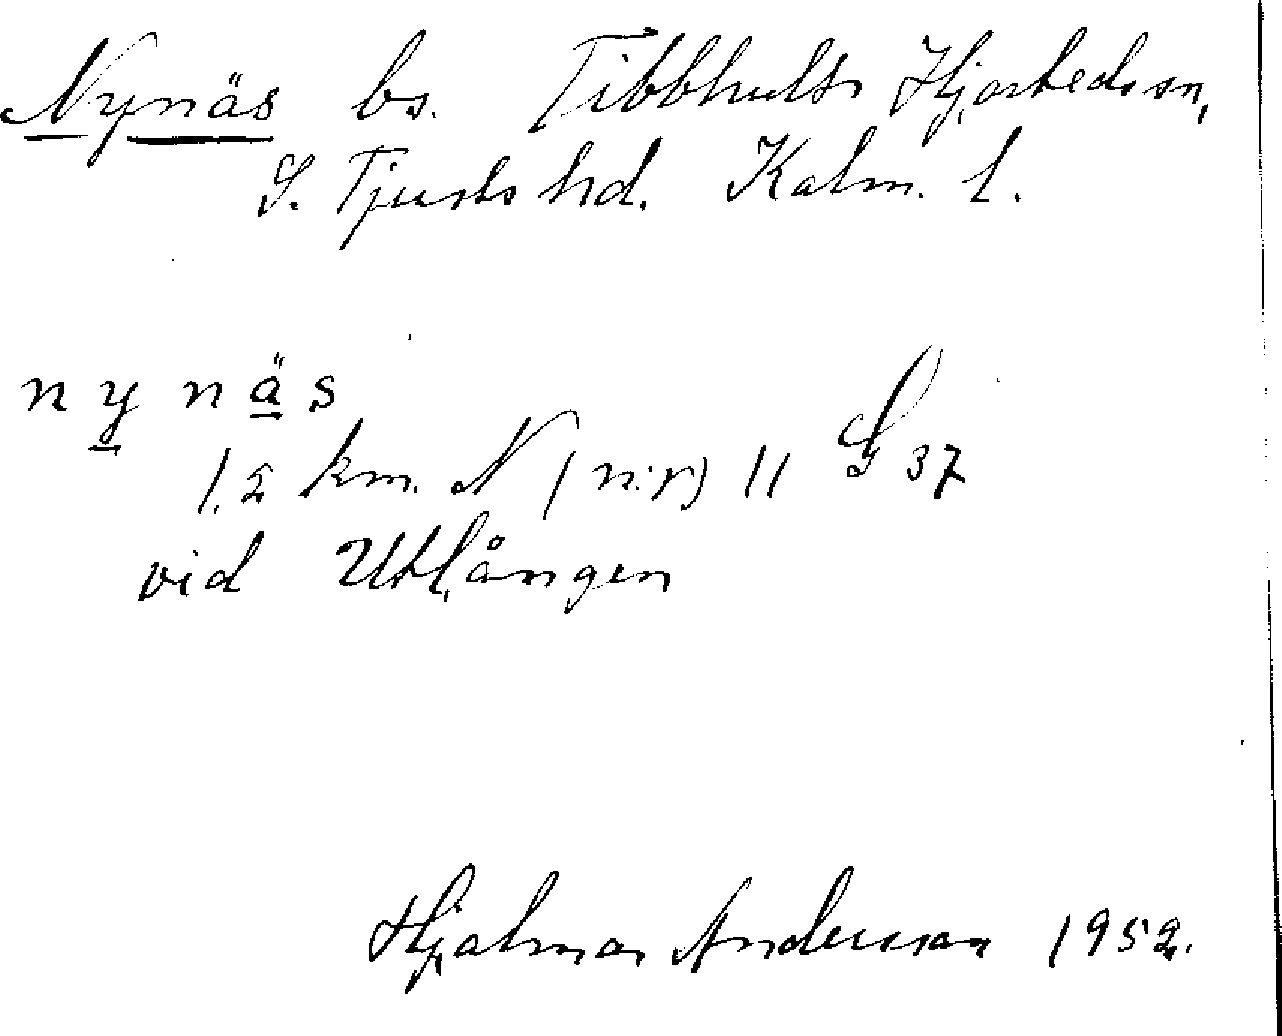 Nynäs bs. Tibbhult, Hjorteds sn,
S. Tjusts hd. Kalm. l.
nynäs
1,2 km. N (n:r) 11 G 37
vid Utlången
Hjalmar Andersson 1952.